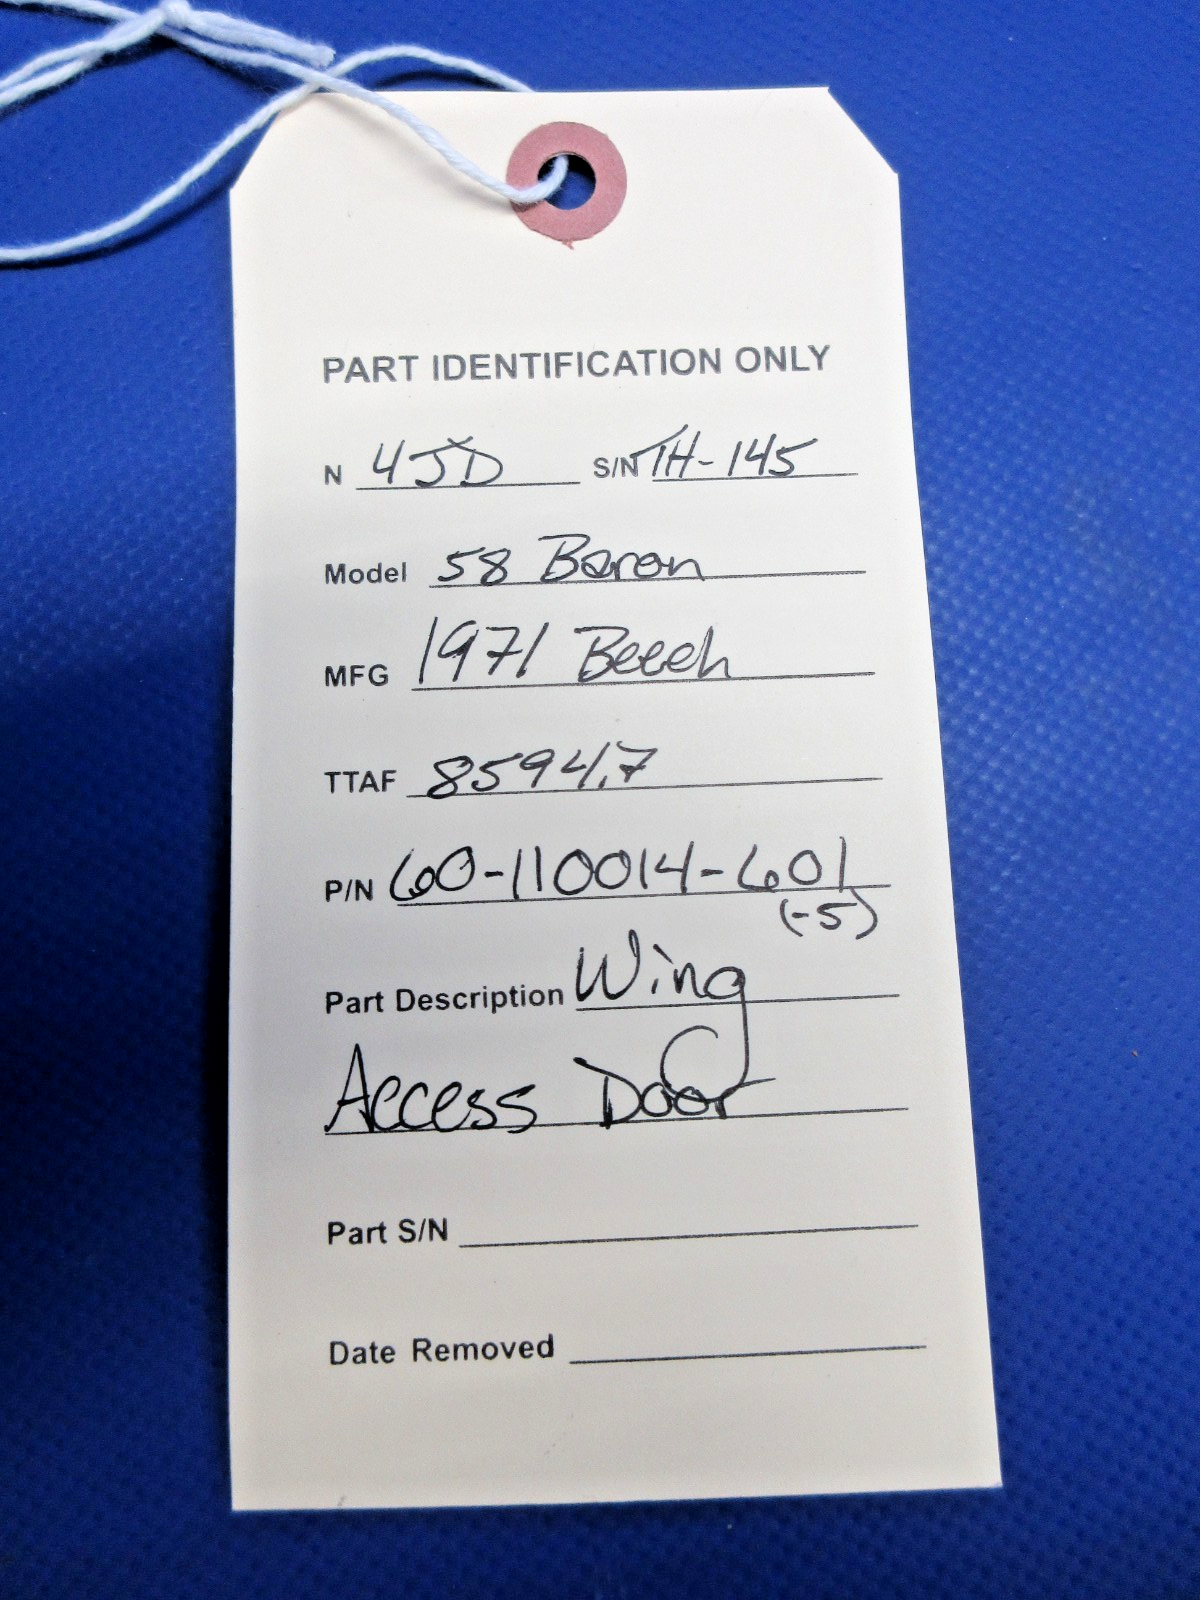 PART IDENTIFICATION ONLY
N 4JD S/N TH-145
Model 58 Baron
MFG 1971 Beech
TTAF 8594.7
P/N 60-110014-601
(-5)
Part Description Wing
Access Door
Part S/N
Date Removed